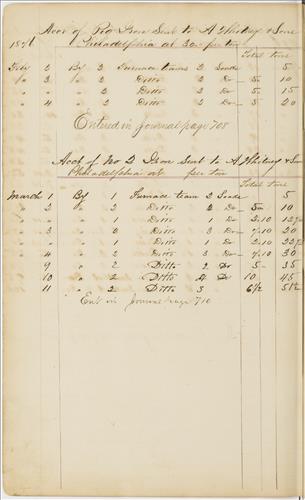 Acct of Pig Iron Sent to A Whitney & Sons
1876 Philadelphia at 30 per ton
Total tons
2 By 2 Furnace teams 2 Loads 5
" 3 " 2 Ditto 2 Do — 5 10
" " 2 Ditto 2 Do — 5 15
" 4 " 2 Ditto 2 Do — 5 20
Entered in Journal page 708
Acct of No 2 Iron Sent to A Whitney & Sons
Philadelphia at per ton
Total tons
March 1 By 1 Furnace team 2 Loads 5
" 2 " 2 Ditto 2 Do — 5 10
" " 1 Ditto 1 Do — 2.10 12½
" 3 " 2 Ditto 3 Do — 7.10 20
" " 1 Ditto 1 Do — 2.10 22½
" 4 " 2 Ditto 3 Do — 7.10 30
" 9 " 2 Ditto 2 Do 5 — 35
10 " 2 Ditto 4 Do 10 45
11 " 2 Ditto 3 6½ 51½
Ent in Journal page 710